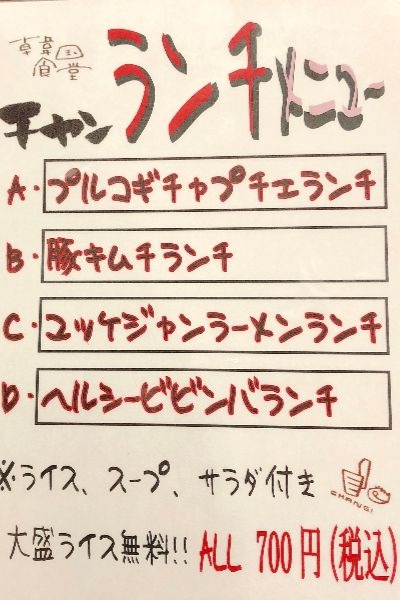 韓国食堂
チャン ランチメニュー
A・プルコギチャプチェランチ
B・豚キムチランチ
C・ユッケジャンラーメンランチ
D・ヘルシービビンバランチ
※ライス、スープ、サラダ付き
CHANG!
大盛ライス無料!! ALL 700円(税込)